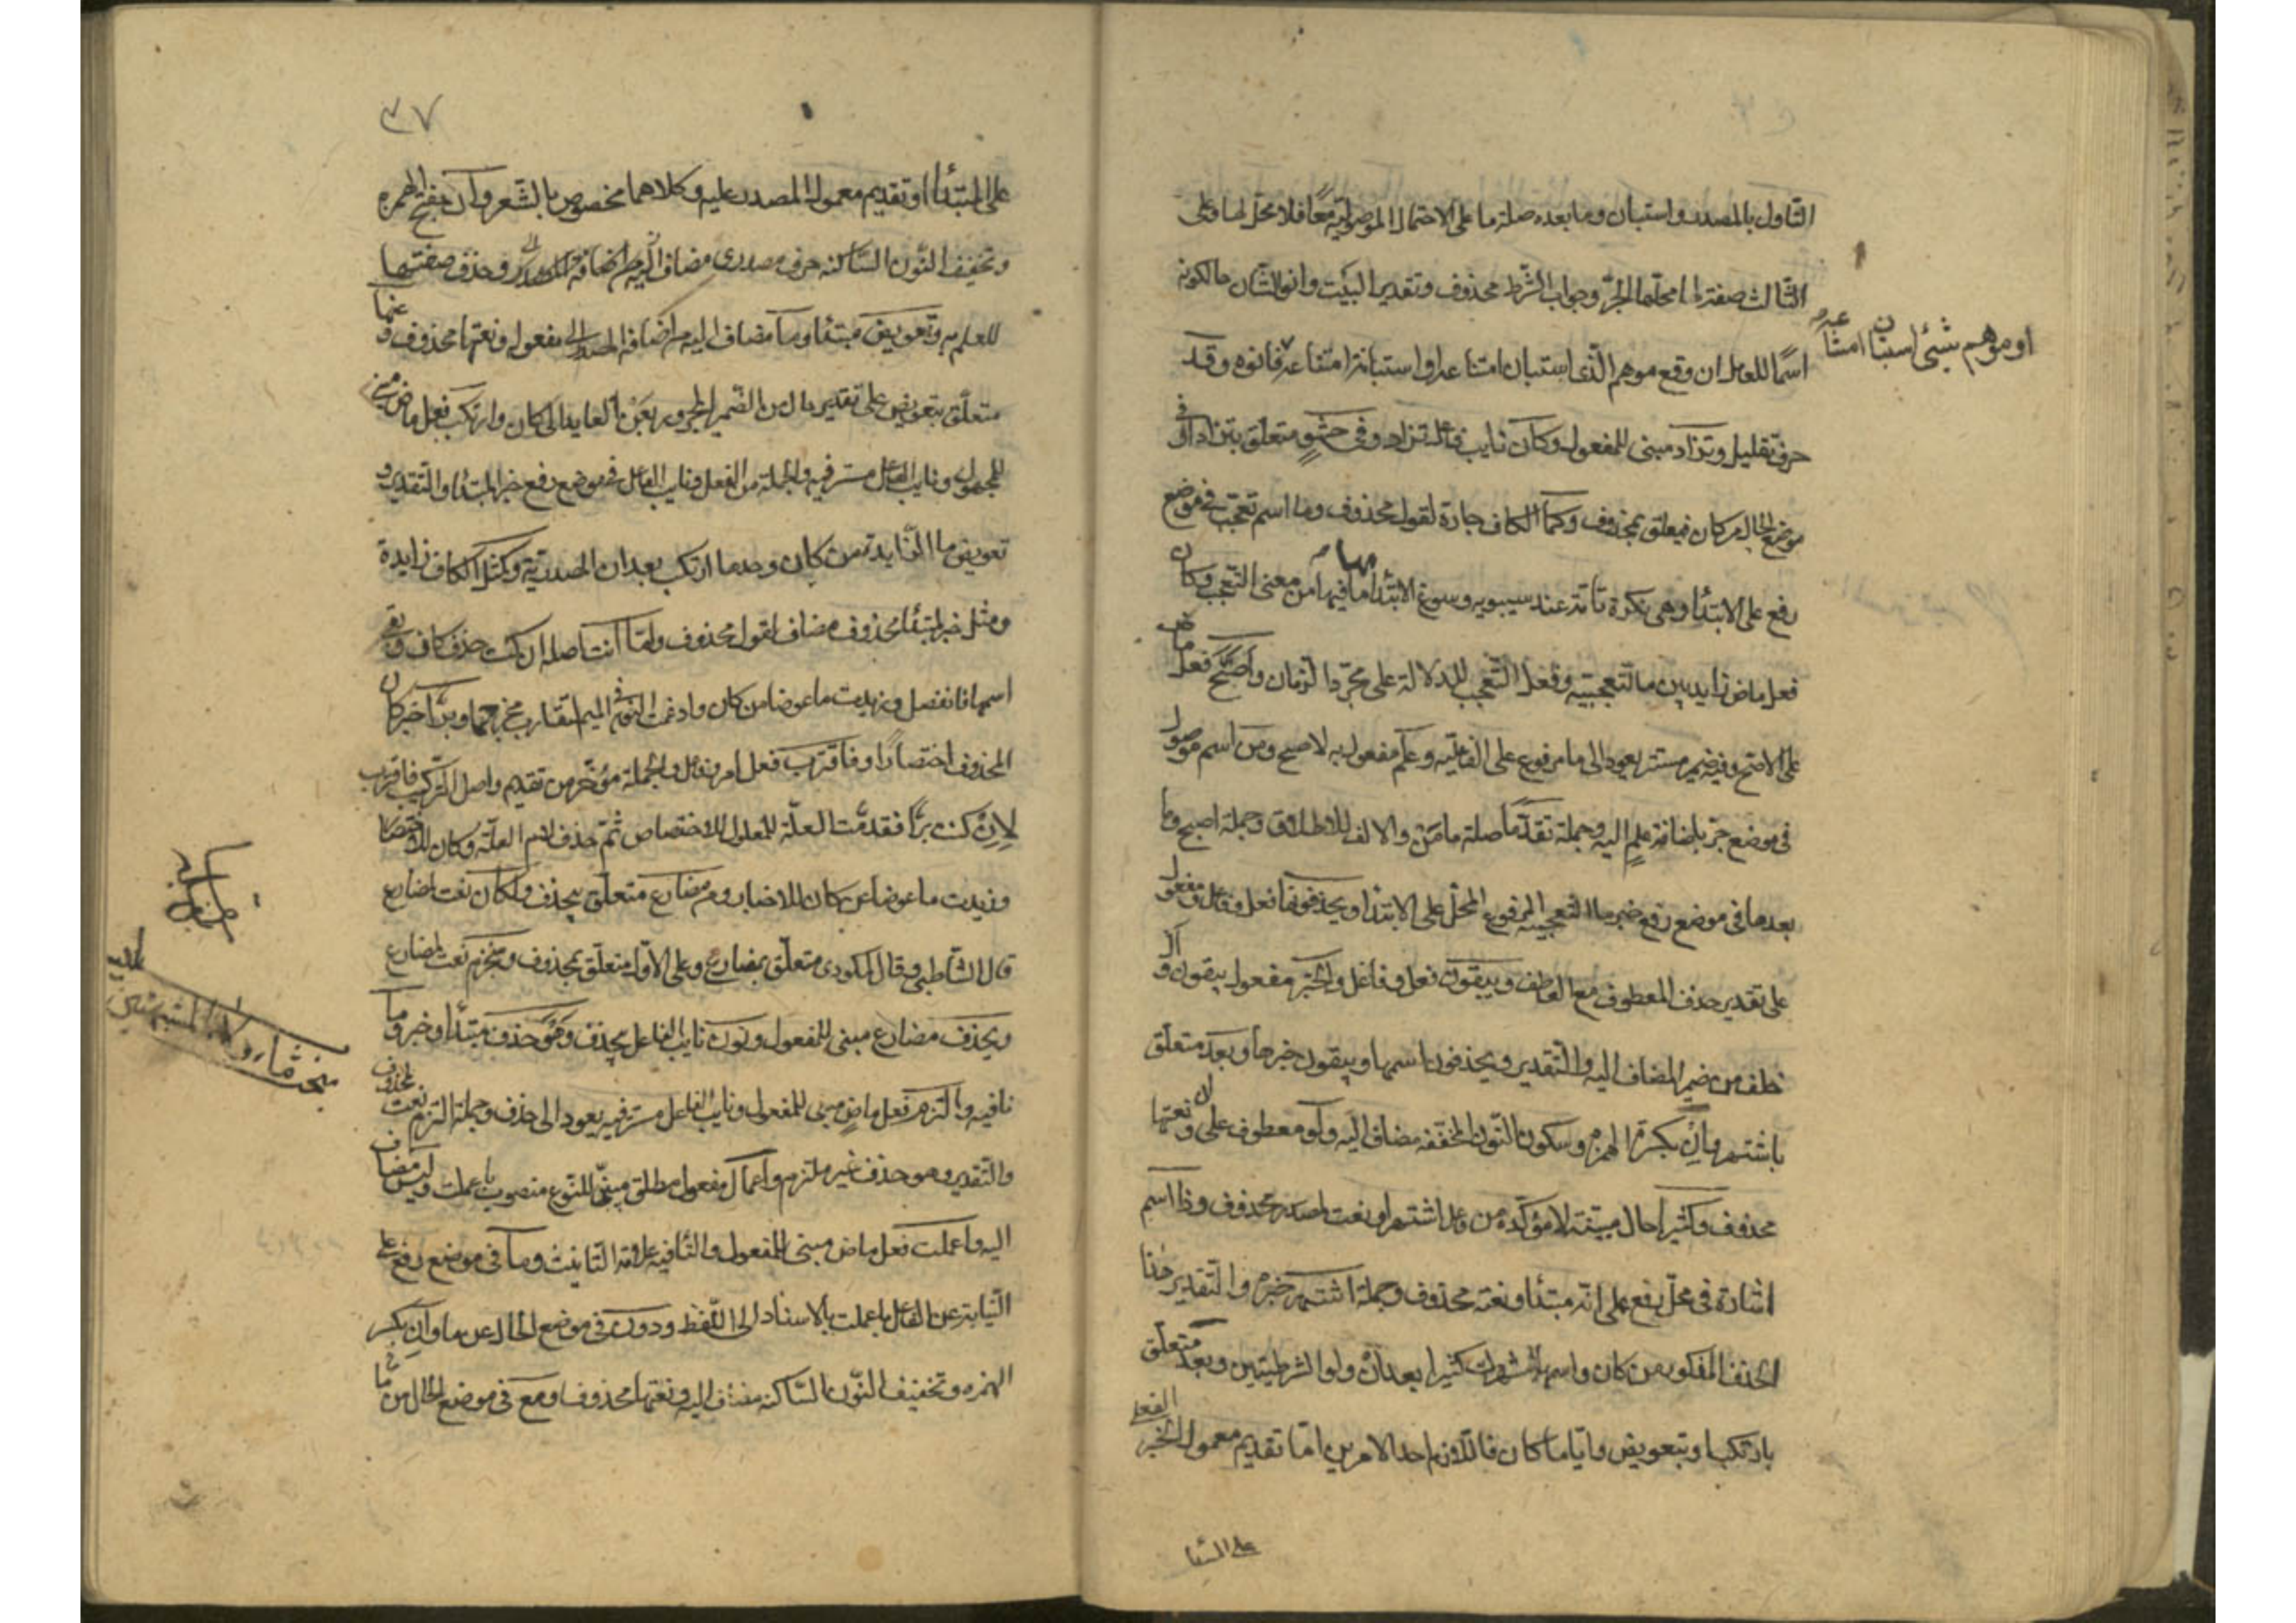 التاول بالمصدر واستبان وما بعده صلة ما على الاحتمال الموصولية معًا فلا محل لها وعلى
الثالث صفة لما محلها الجر وجواب الشرط محذوف وتقدير البيت وانو الشان حالكونه
اسمًا للعامل ان وقع موهم الذى استبان امتناعه او استبانة امتناعه فانوه وقد
او موهم شئ استبان امتناعه
حرف تقليل وتزاد مبنى للمفعول وكان نايب فاعل تزاد وفى حشو متعلق بتزاد او فى
موضع الحال من كان فيتعلق بمحذوف وكما الكاف جارة لقول محذوف وما اسم تعجب فى موضع
رفع على الابتدا وهى نكرة تامة عند سيبويه وسوغ الابتدا بها ما فيها من معنى التعجب وكان
فعل ماض زايد بين ما التعجبية وفعل التعجب للدلالة على مجرد الزمان واصح فعل ماض
على الاصح وفيه ضمير مستتر يعود الى ما مرفوع على الفاعلية وعلم مفعول به لاصح ومن اسم موصول
فى موضع جر باضافة علم اليه وجملة تقدما صلة من والالف للاطلاق وجملة اصح وما
بعدها فى موضع رفع خبر ما التعجبية المرفوع المحل على الابتدا ويحذفونها فعل وفاعل ومفعول
على تقدير حذف المعطوف مع العاطف ويبقون فعل وفاعل والخبر مفعول يبقون وال
خلف من ضمير المضاف اليه والتقدير ويحذفون اسمها ويبقون خبرها وبعد متعلق
باشتهر وان بكسر الهمزه وسكون النون المخففه مضاف اليه ولو معطوف على ان ونعتها
محذوف وكثيرا حال مبينة لا مؤكدة من فاعل اشتهر او نعت لمصدر محذوف وذا اسم
اشارة فى محل رفع على انه مبتدا ونعته محذوف وجملة اشتهر خبره والتقدير هذا
الحذف المذكور من كان واسمها اشتهر كثيرا بعد ان ولو الشرطيتين وبعد متعلق
بارتكب او بتعويض واياما كان فاللازم احد الامرين اما تقديم معمول الخبر الفعلى
على المبتدا
٣٧
على المبتدا او تقديم معمول المصدر عليه وكلاهما مخصوص بالشعر وان بفتح الهمزه
وتخفيف النون الساكنه حرف مصدرى مضاف اليه وحذف صفتها
للعلم به وتعويض مبتدا وما مضاف اليه من اضافة المصدر الى مفعوله ونعتها محذوف وعنها
متعلق بتعويض على تقدير حال من الضمير المجرور بعن العايد الى كان وارتكب فعل ماض مبنى
للمجهول ونايب الفاعل مستتر فيه والجملة من الفعل ونايب الفاعل فى موضع رفع خبر المبتدا والتقدير و
تعويض ما الزايدة من كان وحدها ارتكب بعد ان المصدرية وكمثل الكاف زايدة
ومثل خبر لمبتدا محذوف مضاف لقول محذوف واما انت اصله ان كنت حذف كان وبقى
اسمها فانفصل وزيدت ما عوضا من كان وادغمت النون فى الميم لتقارب مخرجهما وبرا خبر كان
المحذوف اختصارا وفاقترب فعل امر وفاعل والجملة مؤخر من تقديم واصل التركيب فاقترب
لان كنت برًّا فقدمت العلة للمعلول للاختصاص ثم حذف لام العلة وكان للاختصار
وزيدت ما عوضا عن كان للاختصار ومن مضارع متعلق بيحذف ولكان نعت لمضارع
قال الشاطبى وقال المكودى متعلق بمضارع وعلى الاول متعلق بمحذوف ومنجزم نعت لمضارع
ويحذف مضارع مبنى للمفعول ونون نايب الفاعل بيحذف وهو حذف مبتدا وخبر وما
نافيه والتزم فعل ماض مبنى للمفعول ونايب الفاعل مستتر فيه يعود الى حذف وجملة التزم نعت لحذف
والتقدير وهو حذف غير ملتزم واعمال مفعول مطلق مبين للنوع منصوب باعملت وليس مضاف
اليه واعملت فعل ماض مبنى للمفعول والتا فيه علامة التانيث وما فى موضع رفع على
النيابة عن الفاعل باعملت بالاسناد الى اللفظ ودون فى موضع الحال من ما وان بكسر
الهمزه وتخفيف النون الساكنه مضاف اليه ونعتها محذوف ومع فى موضع الحال من ما